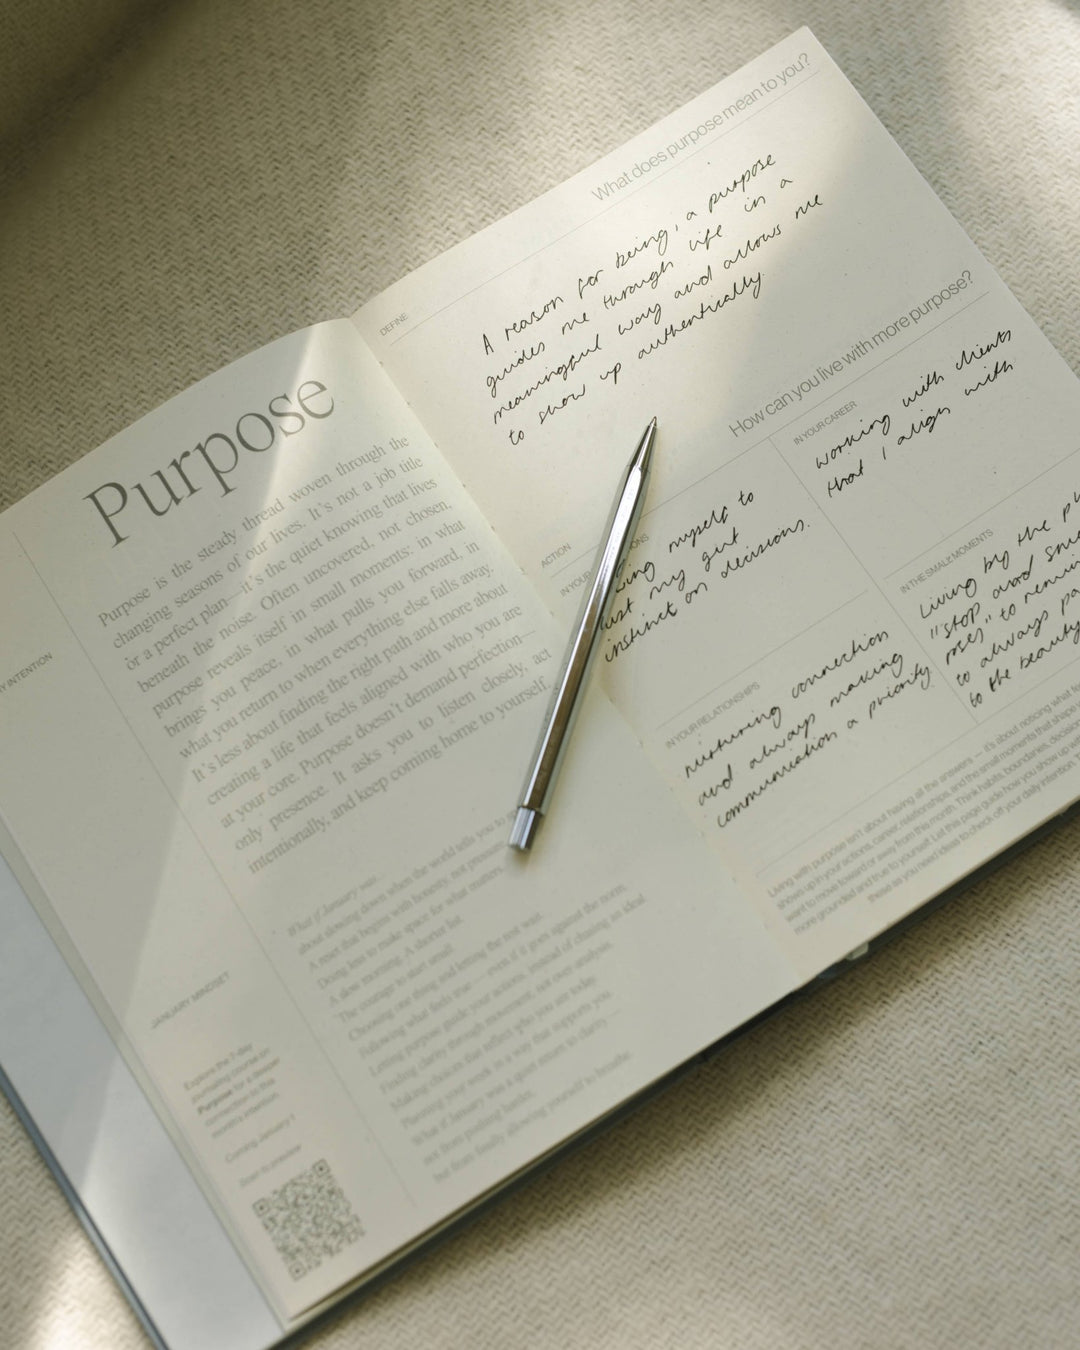 Purpose
Purpose is the steady thread woven through the
changing seasons of our lives. It's not a job title
or a perfect plan—it's the quiet knowing that lives
beneath the noise. Often uncovered, not chosen,
purpose reveals itself in small moments: in what
brings you peace, in what pulls you forward, in
what you return to when everything else falls away.
It's less about finding the right path and more about
creating a life that feels aligned with who you are
at your core. Purpose doesn't demand perfection—
only presence. It asks you to listen closely, act
intentionally, and keep coming home to yourself.
INTENTION
JANUARY MINDSET
What if January was...
about slowing down when the world tells you to
A reset that begins with honesty, not
Doing less to make space for what matters.
A slow morning. A shorter list.
The courage to start small.
Choosing one thing and letting the rest wait.
Following what feels true — even if it goes against the norm.
Letting purpose guide your actions, instead of chasing an ideal
Finding clarity through movement, not over analysis.
Making choices that reflect who you are today.
Planning your week in a way that supports you.
What if January was a quiet return to clarity
not from pushing harder,
but from finally allowing yourself to breathe.
Explore the 7-day
journaling course on
Purpose for a deeper
connection to this
month's intention.
Coming January 1
Scan to preview
What does purpose mean to you?
DEFINE
A reason for being, a purpose
guides me through life in a
meaningful way and allows me
to show up authentically.
How can you live with more purpose?
ACTION
IN YOUR
myself to
my gut
instinct on decisions.
IN YOUR CAREER
working with clients
that I align with
IN YOUR RELATIONSHIPS
nurturing connection
and always making
communication a priority
IN THE SMALL MOMENTS
Living by the
"stop and
roses" to
to always
to the beauty
Living with purpose isn't about having all the answers — it's about noticing what
shows up in your actions, career, relationships and the small moments that shape
want to move toward or away from this month. Think habits, boundaries,
more grounded and true to yourself. Let this page guide how you show up
these as you need ideas to check off your daily intention